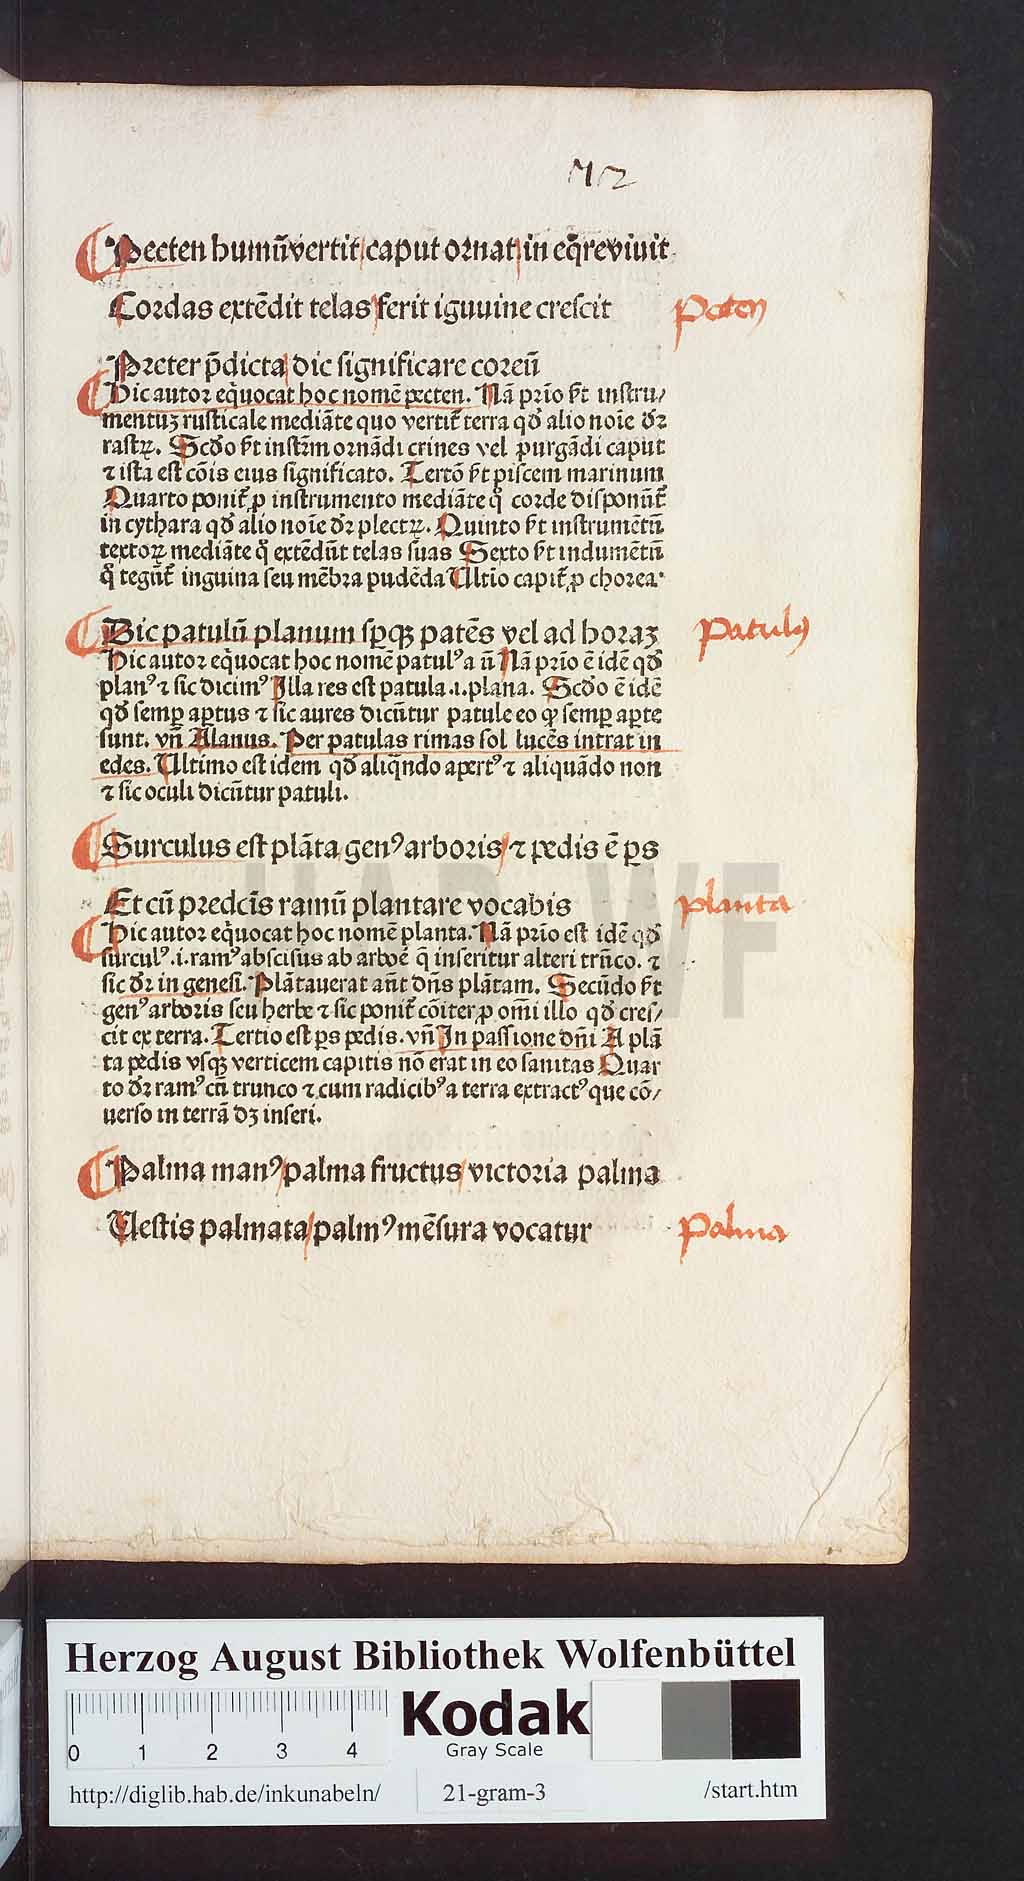 ¶Pecten humū vertit/caput ornat/in eq̄reviuit
Cordas extēdit telas/ferit iguuine crescit
Pecten
Preter p̄dicta/dic significare coreū
¶Hic autor eq̄uocat hoc nomē pecten. Nā prīo s̄t instru/
mentuȝ rusticale mediāte quo vertit̄ terra qd̄ alio noīe dr̄
rastꝝ. Scd̄o s̄t instr̄m ornādi crines vel purgādi caput
⁊ ista est cōis eius significato. Tertō s̄t piscem marinum
Quarto ponit̄ ꝓ instrumento mediāte q̊ corde disponūt̄
in cythara qd̄ alio noīe dr̄ plectꝝ. Quinto s̄t instrumētū
textoꝝ mediāte q̊ extēdūt telas suas Sexto s̄t indumētū
q̊ tegūt̄ inguina seu mēbra pudēda Ultīo capit̄ ꝓ chorea.
¶Dic patulū planum sp̄qꝫ patēs vel ad horaꝫ
Patulus
Hic autor eq̄uocat hoc nomē patulꝰ a ū Nā prīo ē idē qd̄
planꝰ ⁊ sic dicimꝰ Illa res est patula .i. plana. Scd̄o ē idē
qd̄ semꝑ aꝑtus ⁊ sic aures dicūtur patule eo ꝙ semꝑ aꝑte
sunt. vn̄ Alanus. Per patulas rimas sol lucēs intrat in
edes. Ultimo est idem qd̄ aliqn̄do apertꝰ ⁊ aliquādo non
⁊ sic oculi dicūtur patuli.
¶Surculus est plāta genꝰ arboris/⁊ pedis ē ꝑs
Et cū predcīs ramū plantare vocabis
planta
¶Hic autor eq̄uocat hoc nomē planta. Nā prīo est idē qd̄
surculꝰ .i. ramꝰ abscisus ab arboē q̄ inseritur alteri trūco. ⁊
sic dr̄ in genesi. Plātauerat an̄t dn̄s plātam. Secūdo s̄t
genꝰ arboris seu herbe ⁊ sic ponit̄ cōiter ꝓ om̄i illo qd̄ cres/
cit ex terra. Tertio est ꝑs pedis. vn̄ In passione dn̄i A plā
ta pedis vsqꝫ verticem capitis nō erat in eo sanitas Quar
to dr̄ ramꝰ cū trunco ⁊ cum radicibꝰ a terra extractꝰ que cō/
uerso in terrā dꝫ inseri.
¶Palma manꝰ/palma fructus/victoria palma
Uestis palmata/palmꝰ mēsura vocatur
Palma
HAB WF
Herzog August Bibliothek Wolfenbüttel
0 1 2 3 4
Kodak
Gray Scale
http://diglib.hab.de/inkunabeln/ 21-gram-3 /start.htm